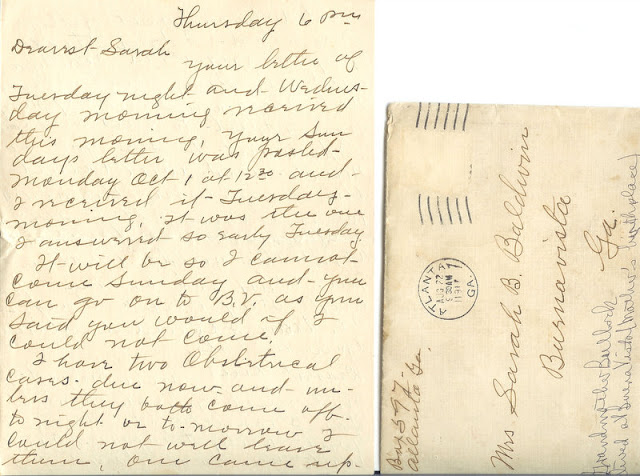 Thursday 6 pm
Dearest Sarah
your letter of
Tuesday night and Wednes-
day morning received
this morning, your Sun
days letter was posted
Monday Oct 1 at 12 30 and
I received it Tuesday
morning, it was the one
I answered so early Tuesday.
It will be so I cannot
come Sunday and you
can go on to B.V. as you
said you would if I
could not come.
I have two Obstetrical
cases due now and un-
less they both come off
to night or to-morrow I
could not well leave
them, one came up-
ATLANTA
GA.
AUG 22
1911
Mrs Sarah B. Baldwin
Buenavista
Ga.
Box 597
Atlanta Ga.
Bullock